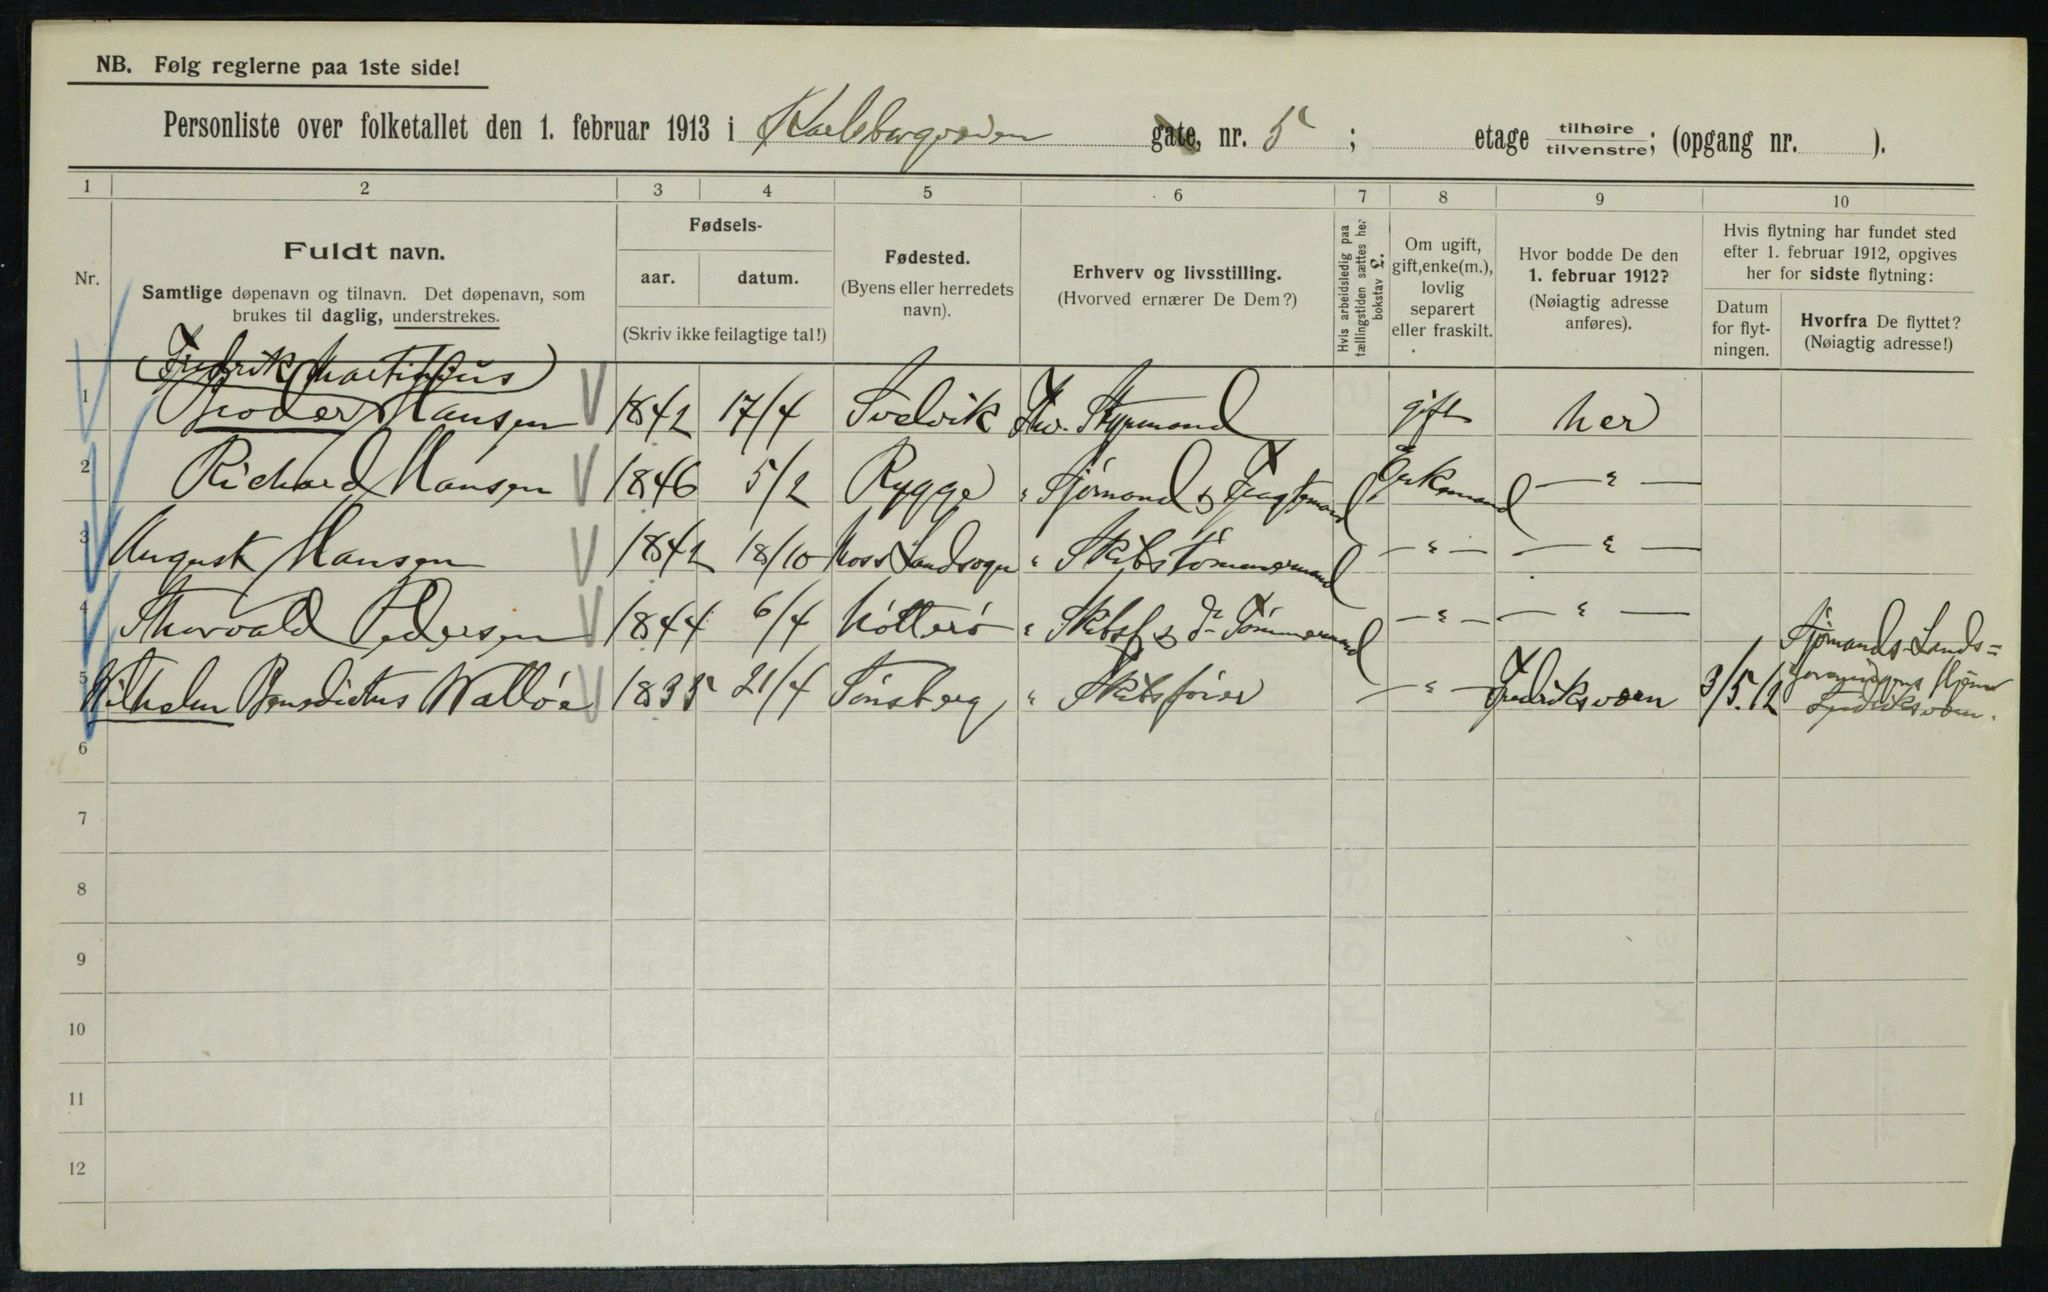 NB. Følg reglerne paa 1ste side!
Personliste over folketallet den 1. februar 1913 i Karlsborgveien gate, nr. 5 ; etage tilhøire tilvenstre; (opgang nr. ).
1 2 3 4 5 6 7 8 9 10
Nr.
Fuldt navn.
Samtlige døpenavn og tilnavn. Det døpenavn, som
brukes til daglig, understrekes.
Fødsels-
aar. datum.
(Skriv ikke feilagtige tal!)
Fødested.
(Byens eller herredets
navn).
Erhverv og livsstilling.
(Hvorved ernærer De Dem?)
Hvis arbeidsledig paa
tællingstiden sættes her
bokstav L.
Om ugift,
gift, enke(m.),
lovlig
separert
eller fraskilt.
Hvor bodde De den
1. februar 1912?
(Nøiagtig adresse
anføres).
Hvis flytning har fundet sted
efter 1. februar 1912, opgives
her for sidste flytning:
Datum
for flyt-
ningen.
Hvorfra De flyttet?
(Nøiagtig adresse!)
(Fredrik Martinius)
1 Hansen 1842 17/4 Svelvik Fhv. Styrmand gift her
2 Richard Hansen 1846 5/2 Rygge " Sjømand & Enkemand — " —
3 August Hansen 1842 18/10 Moss Landsogn " Skibstømmermand — " — — " —
4 Thorvald Pedersen 1844 6/4 Nötterö " Skibsf & Tömmermand — " — — " —
5 Wilhelm Benedictus Wallöe 1835 21/4 Tönsberg " Skibsfører — " — Fredriksværn 3/5.12 Sjømands-Lands=
foreningens Hjem
Fredriksværn.
6
7
8
9
10
11
12